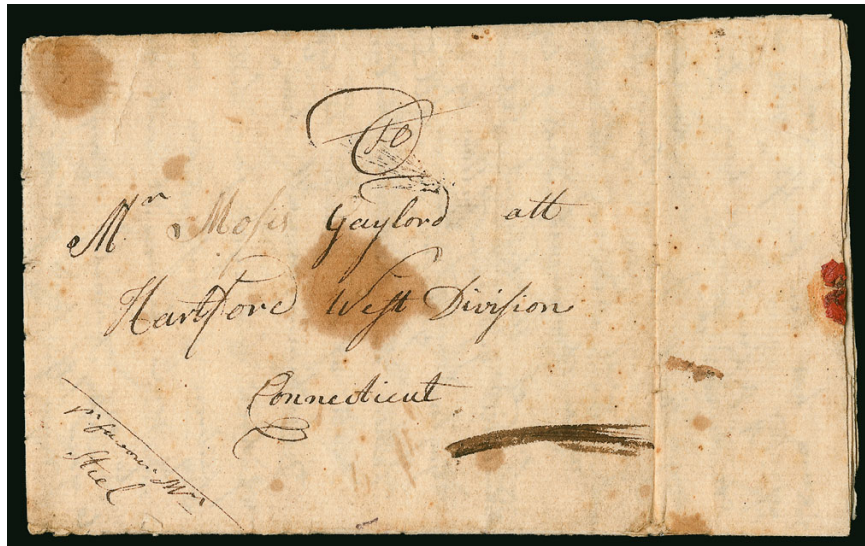 To
Mr Mosis Gaylord att
Hartford West Division
Connecticut
pr favour Mr
Steel